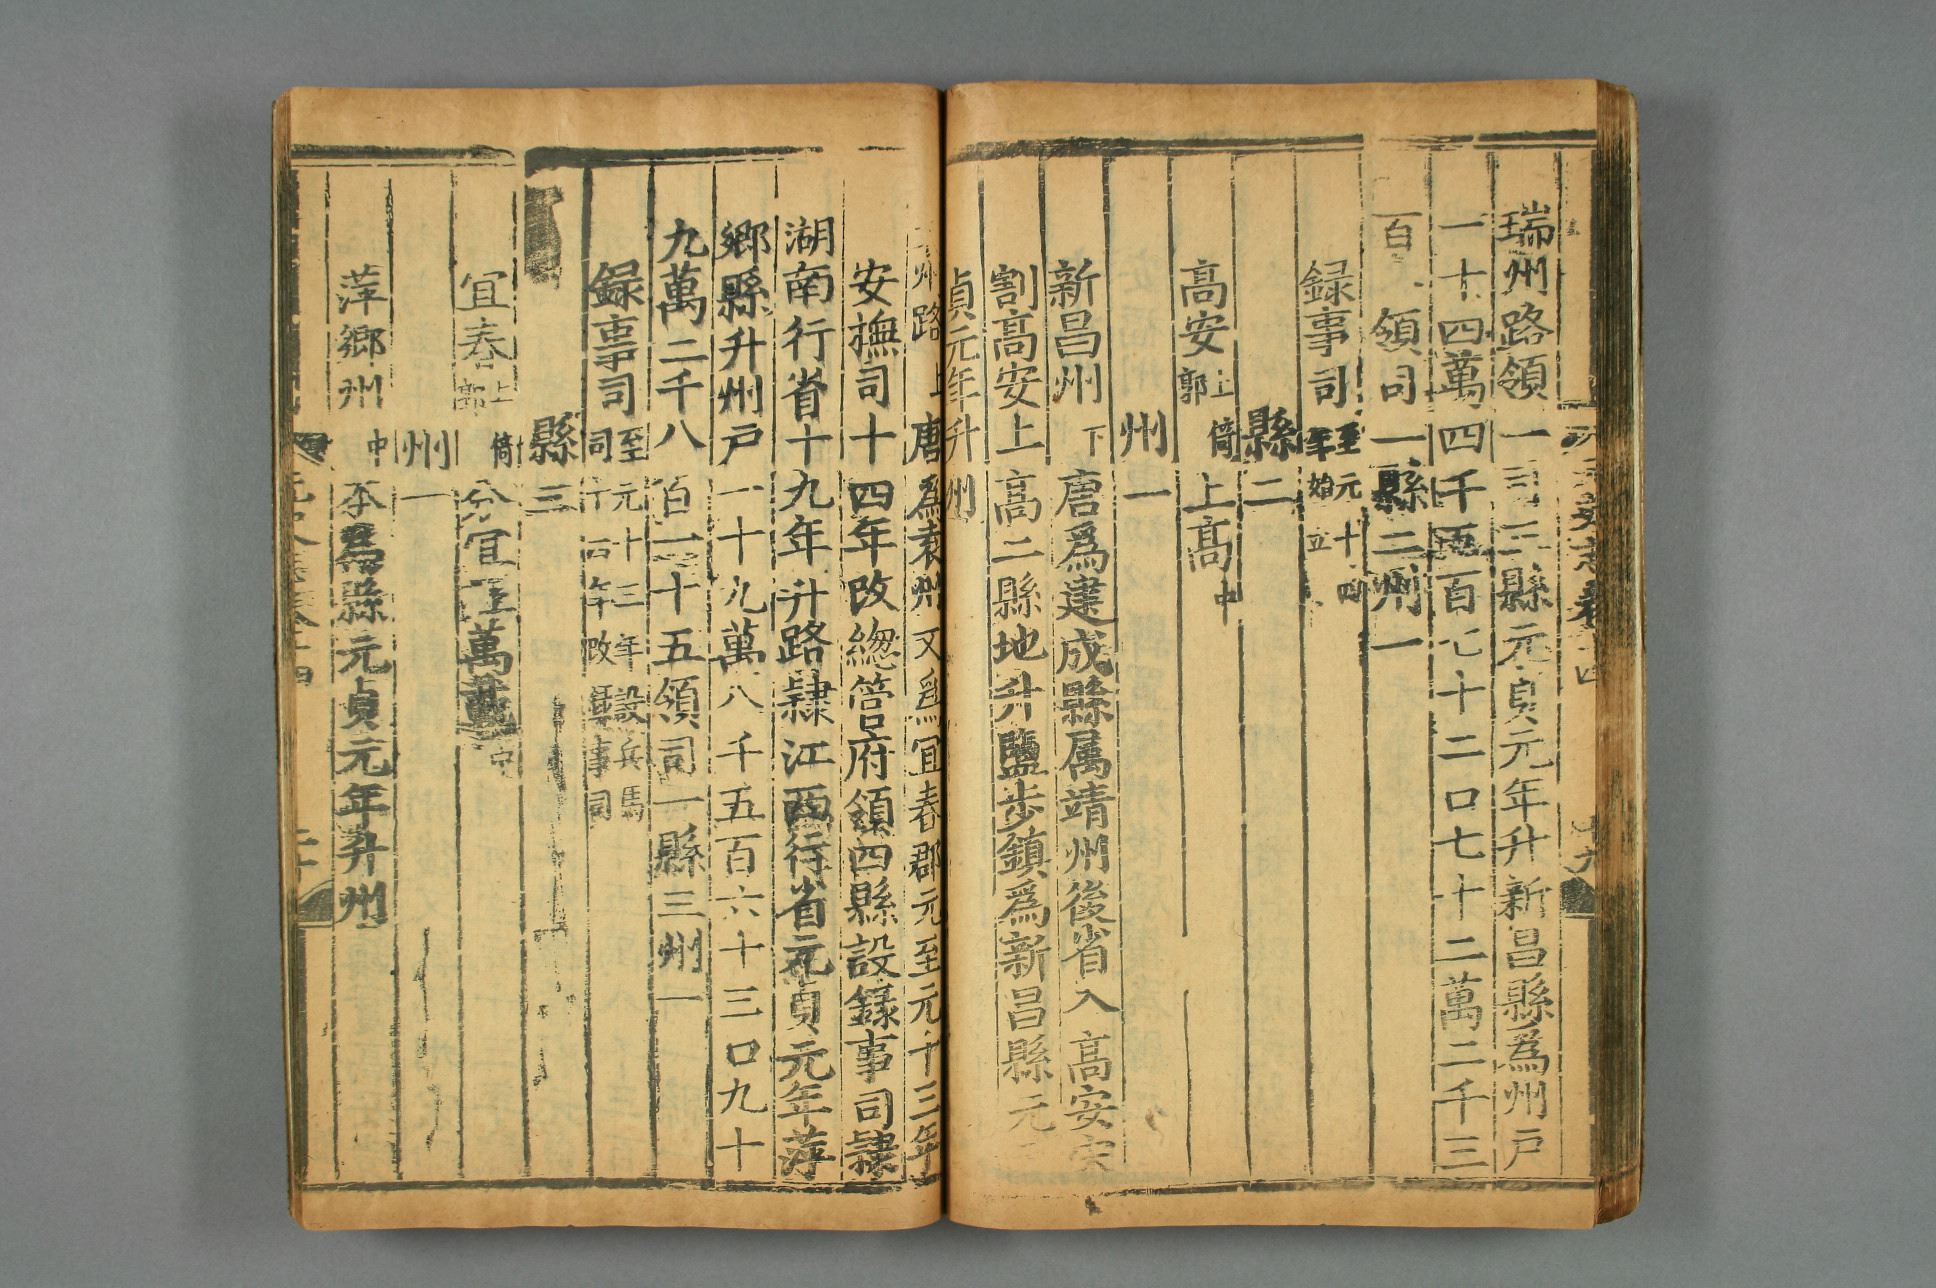 瑞州路領一司三縣元貞元年升新昌縣爲州户
一十四萬四千五百七十二口七十二萬二千三
百領司一縣二州一
録事司至元十四年始立
縣二
高安上倚郭上高中
州一
新昌州下唐爲建成縣属靖州後省入高安宋
割高安上高二縣地升鹽步鎮爲新昌縣元
貞元年升州
州路上唐爲袁州又爲宜春郡元至元十三年
安撫司十四年改緫管府領四縣設録事司隸
湖南行省十九年升路隸江西行省元貞元年萍
鄉縣升州户一十九萬八千五百六十三口九十
九萬二千八百一十五領司一縣三州一
録事司至元十三年設兵馬司十四年改録事司
縣三
宜春上倚郭分宜上萬載中
州一
萍鄉州中本爲縣元貞元年升州